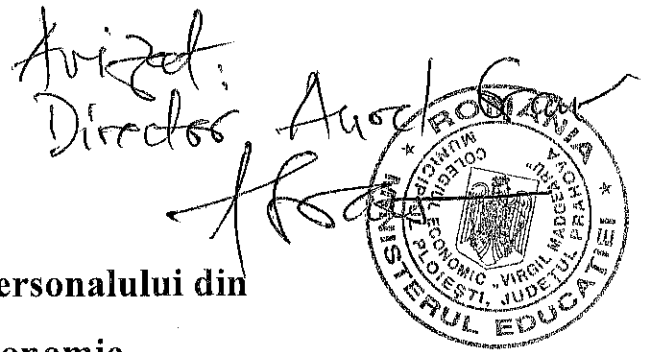 Avizat:
Director Aurel
ROMÂNIA
MINISTERUL EDUCAȚIEI
COLEGIUL ECONOMIC „VIRGIL MADGEARU”
MUNICIPIUL PLOIEȘTI, JUDEȚUL PRAHOVA
ersonalului din
onomie